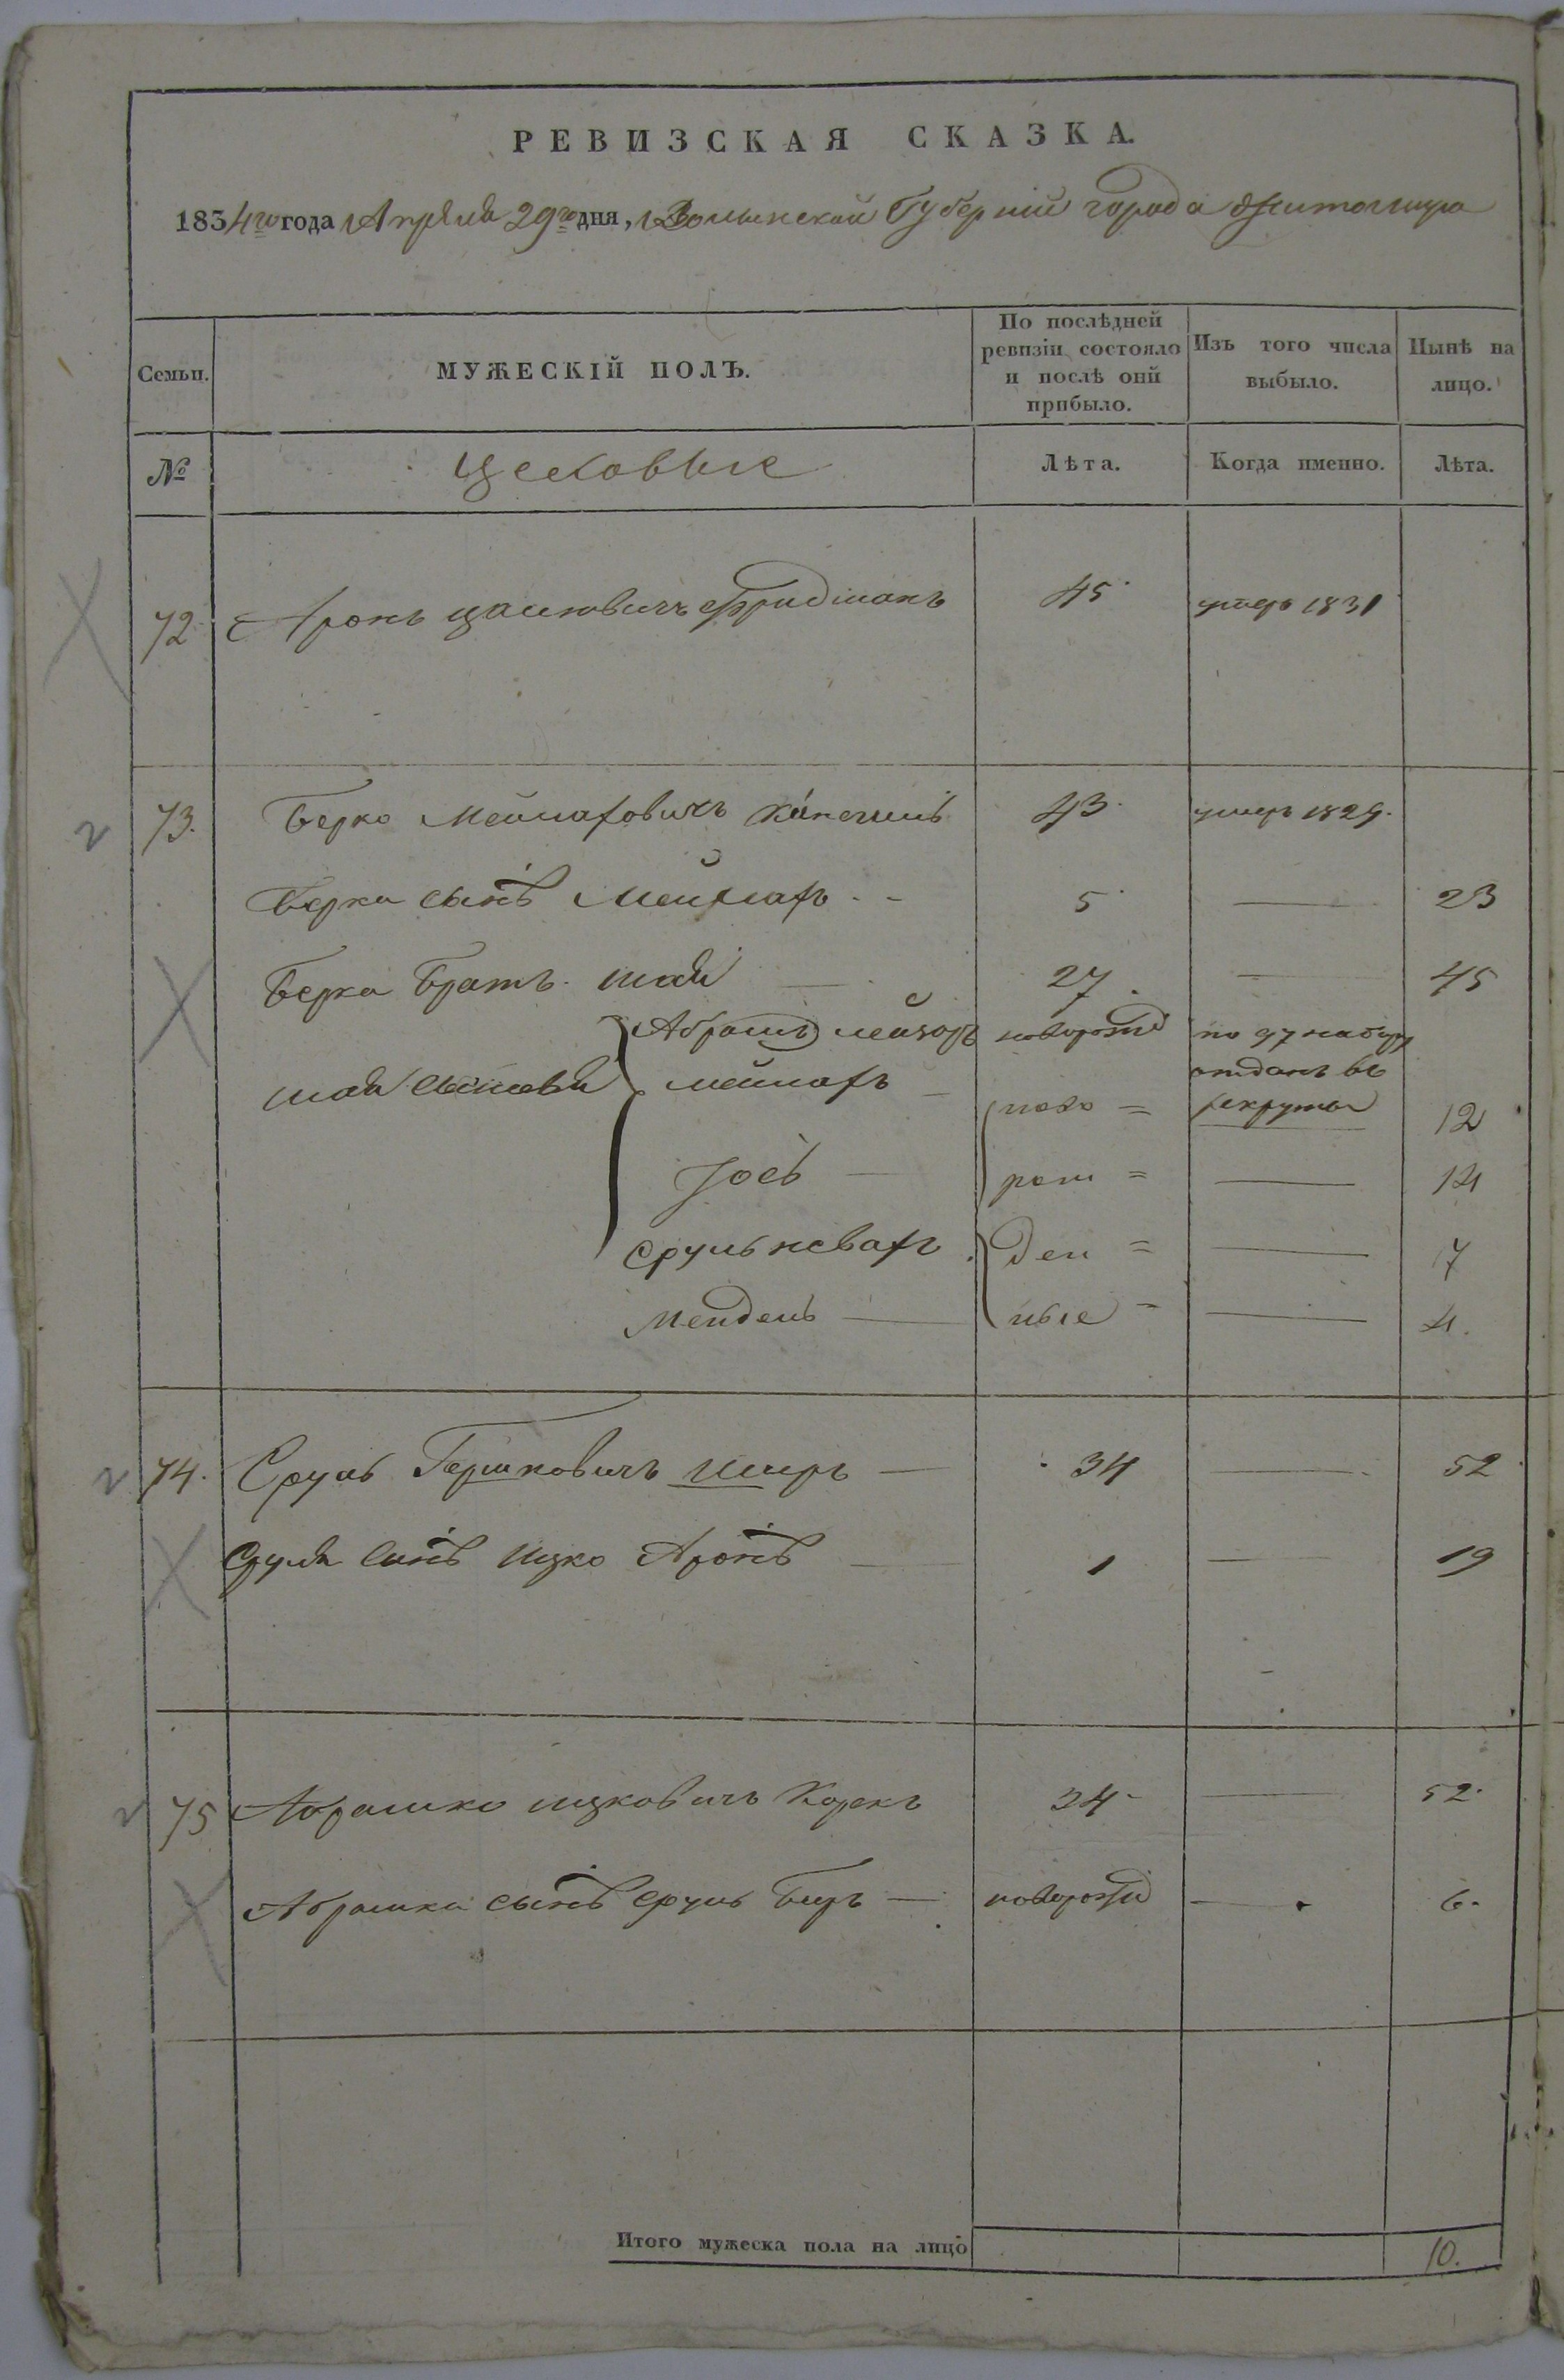 РЕВИЗСКАЯ СКАЗКА.
1834го года Апреля 29го дня, Волынской Губернии города Житомира
Семьи.
МУЖЕСКІЙ ПОЛЪ.
По послѣдней ревизіи состояло и послѣ оній прибыло.
Изъ того числа выбыло.
Нынѣ на лицо.
№
Цеховые
Лѣта.
Когда именно.
Лѣта.
72 Аронъ Фридманъ 45 умеръ 1831
73. Берко Меилаховичъ 43 умеръ 1829.
Берка сынъ Мейлахъ 5 — 23
Берка братъ Шая 27 — 45
Абрамъ Лейзоръ новорожд по 97 набору
Шаи сыновья мейлахъ ново = отданъ въ рекруты 12
Іось — рож = — 14
Сруль Новахъ ден = — 7
Мендель — ные = — 4.
74. Сруль Гершковичъ Ширъ — 34 — 52
Сруля сынъ Ицко Аронъ — 1 — 19
75 Абрамко Ицковичъ Корекъ 34 — 52
Абрамки сынъ Сруль Беръ — новорожд — 6.
Итого мужеска пола на лицо 10.